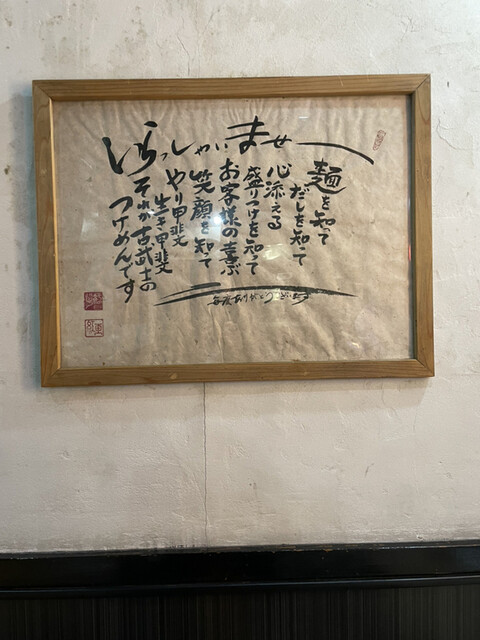 いらっしゃいませー
麺を知って
だしを知って
心添える
盛りつけを知って
お客様の喜ぶ
笑顔を知って
やり甲斐
生き甲斐
それが古武士の
つけめんです
毎度ありがとうございます